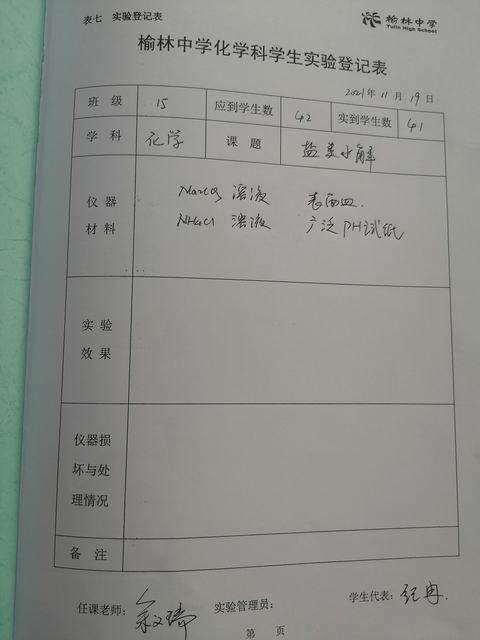 表七 实验登记表
榆林中学
Yulin High School
榆林中学化学科学生实验登记表
2021年11月19日
班级 15 应到学生数 42 实到学生数 41
学科 化学 课题 盐类水解
仪器材料
Na2CO3 溶液 表面皿.
NH4Cl 溶液 广泛PH试纸
实验
效果
仪器损
坏与处
理情况
备注
任课老师: 实验管理员: 学生代表:
第 页